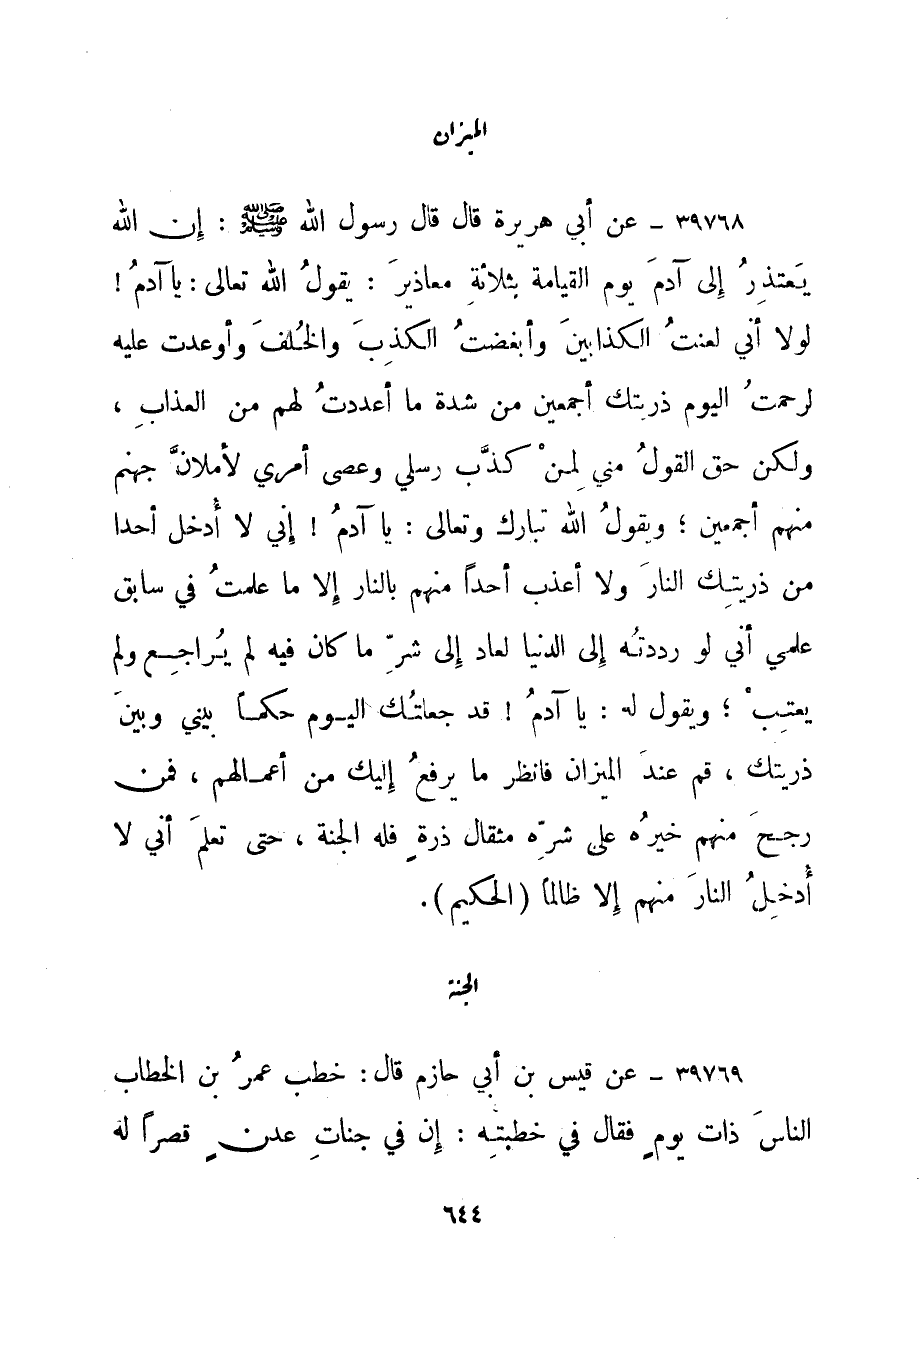 الميزان
٣٩٧٦٨ ـ عن أبي هريرة قال قال رسول الله ﷺ : إن الله
يَعتذِرُ إلى آدمَ يوم القيامة بثلاثةِ معاذيرَ : يقولُ الله تعالى : يا آدمُ !
لولا أني لعنتُ الكذابينَ وأبغضتُ الكذِبَ والخُلفَ وأوعدت عليه
لرحمتُ اليوم ذريتك أجمعين من شدة ما أعددتُ لهم من العذابِ ،
ولكن حق القولُ مني لِمنْ كذَّب رسلي وعصى أمري لأملانَّ جهنم
منهم أجمعين ؛ ويقولُ الله تبارك وتعالى : يا آدمُ ! إني لا أُدخل أحدا
من ذريتِك النارَ ولا أعذب أحداً منهم بالنار إلا ما علمتُ في سابق
علمي أني لو رددتُه إلى الدنيا لعاد إلى شرِّ ما كان فيه لم يُراجِع ولم
يعتِبْ ؛ ويقول له : يا آدمُ ! قد جعلتُك اليوم حكماً بيني وبينَ
ذريتك ، قم عندَ الميزان فانظر ما يرفعُ إليك من أعمالهم ، فمن
رجحَ منهم خيرُه على شرِّه مثقال ذرةٍ فله الجنة ، حتى تعلمَ أني لا
أُدخِلُ النارَ منهم إلا ظالماً (الحكيم).
الجنة
٣٩٧٦٩ ـ عن قيس بن أبي حازم قال : خطب عمرُ بن الخطاب
الناسَ ذات يومٍ فقال في خطبتِه : إن في جناتِ عدنٍ قصراً له
٦٤٤